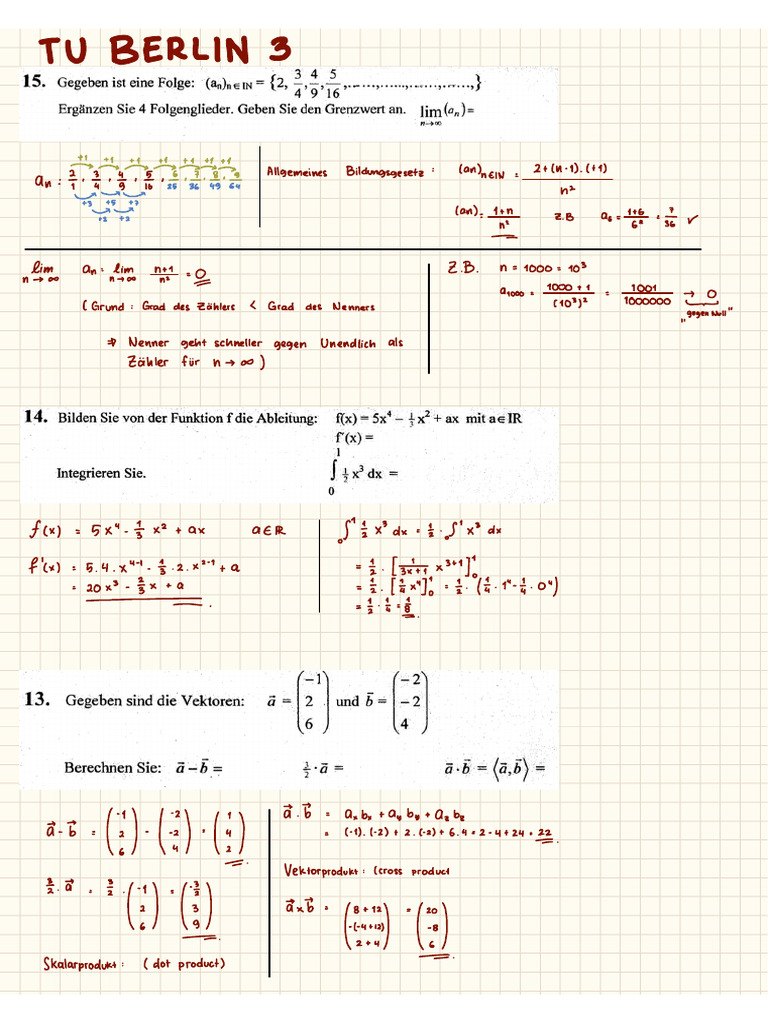 TU BERLIN 3
15. Gegeben ist eine Folge: (aₙ)ₙ∈IN = {2, 3/4, 4/9, 5/16, ......,......,......,......,}
Ergänzen Sie 4 Folgenglieder. Geben Sie den Grenzwert an. lim n→∞ (aₙ) =
+1 +1 +1 +1 +1 +1 +1
aₙ : 2/1, 3/4, 4/9, 5/16, 6/25, 7/36, 8/49, 9/64
+3 +5 +7
+2 +2
Allgemeines Bildungsgesetz : (an)n∈IN = 2+(n-1).(+1) / n²
(an) = 1+n / n² Z.B a₆ = 1+6 / 6² = 7/36 ✓
lim n→∞ an = lim n→∞ n+1 / n² = 0
(Grund : Grad des Zählers < Grad des Nenners
⇒ Nenner geht schneller gegen Unendlich als
Zähler für n → ∞)
Z.B. n = 1000 = 10³
a₁₀₀₀ = 1000 + 1 / (10³)² = 1001 / 1000000 → 0
„gegen Null"
14. Bilden Sie von der Funktion f die Ableitung: f(x) = 5x⁴ – 1/3 x² + ax mit a∈IR
f´(x) =
Integrieren Sie. ∫₀¹ 1/2 x³ dx =
f(x) = 5x⁴ - 1/3 x² + ax a∈R
f'(x) = 5.4.x⁴⁻¹ - 1/3 .2.x²⁻¹ + a
= 20x³ - 2/3 x + a
₀∫¹ 1/2 x³ dx = 1/2 . ₀∫¹ x³ dx
= 1/2 . [1/3x+1 x³⁺¹]₀¹
= 1/2 . [1/4 x⁴]₀¹ = 1/2 . (1/4 . 1⁴ - 1/4 . 0⁴)
= 1/2 . 1/4 = 1/8
13. Gegeben sind die Vektoren: a⃗ = (−1 2 6) und b⃗ = (−2 −2 4)
Berechnen Sie: a⃗ – b⃗ = 3/2 · a⃗ = a⃗ · b⃗ = ⟨a⃗, b⃗⟩ =
a⃗ - b⃗ = (-1 2 6) - (-2 -2 4) = (1 4 2)
3/2 . a⃗ = 3/2 . (-1 2 6) = (-3/2 3 9)
Skalarprodukt : ( dot product)
a⃗ . b⃗ = aₓ bₓ + a_y b_y + a_z b_z
= (-1).(-2) + 2.(-2) + 6.4 = 2 - 4 + 24 = 22
Vektorprodukt : (cross product
a⃗ x b⃗ = (8 + 12 -(-4+12) 2 + 4) = (20 -8 6)